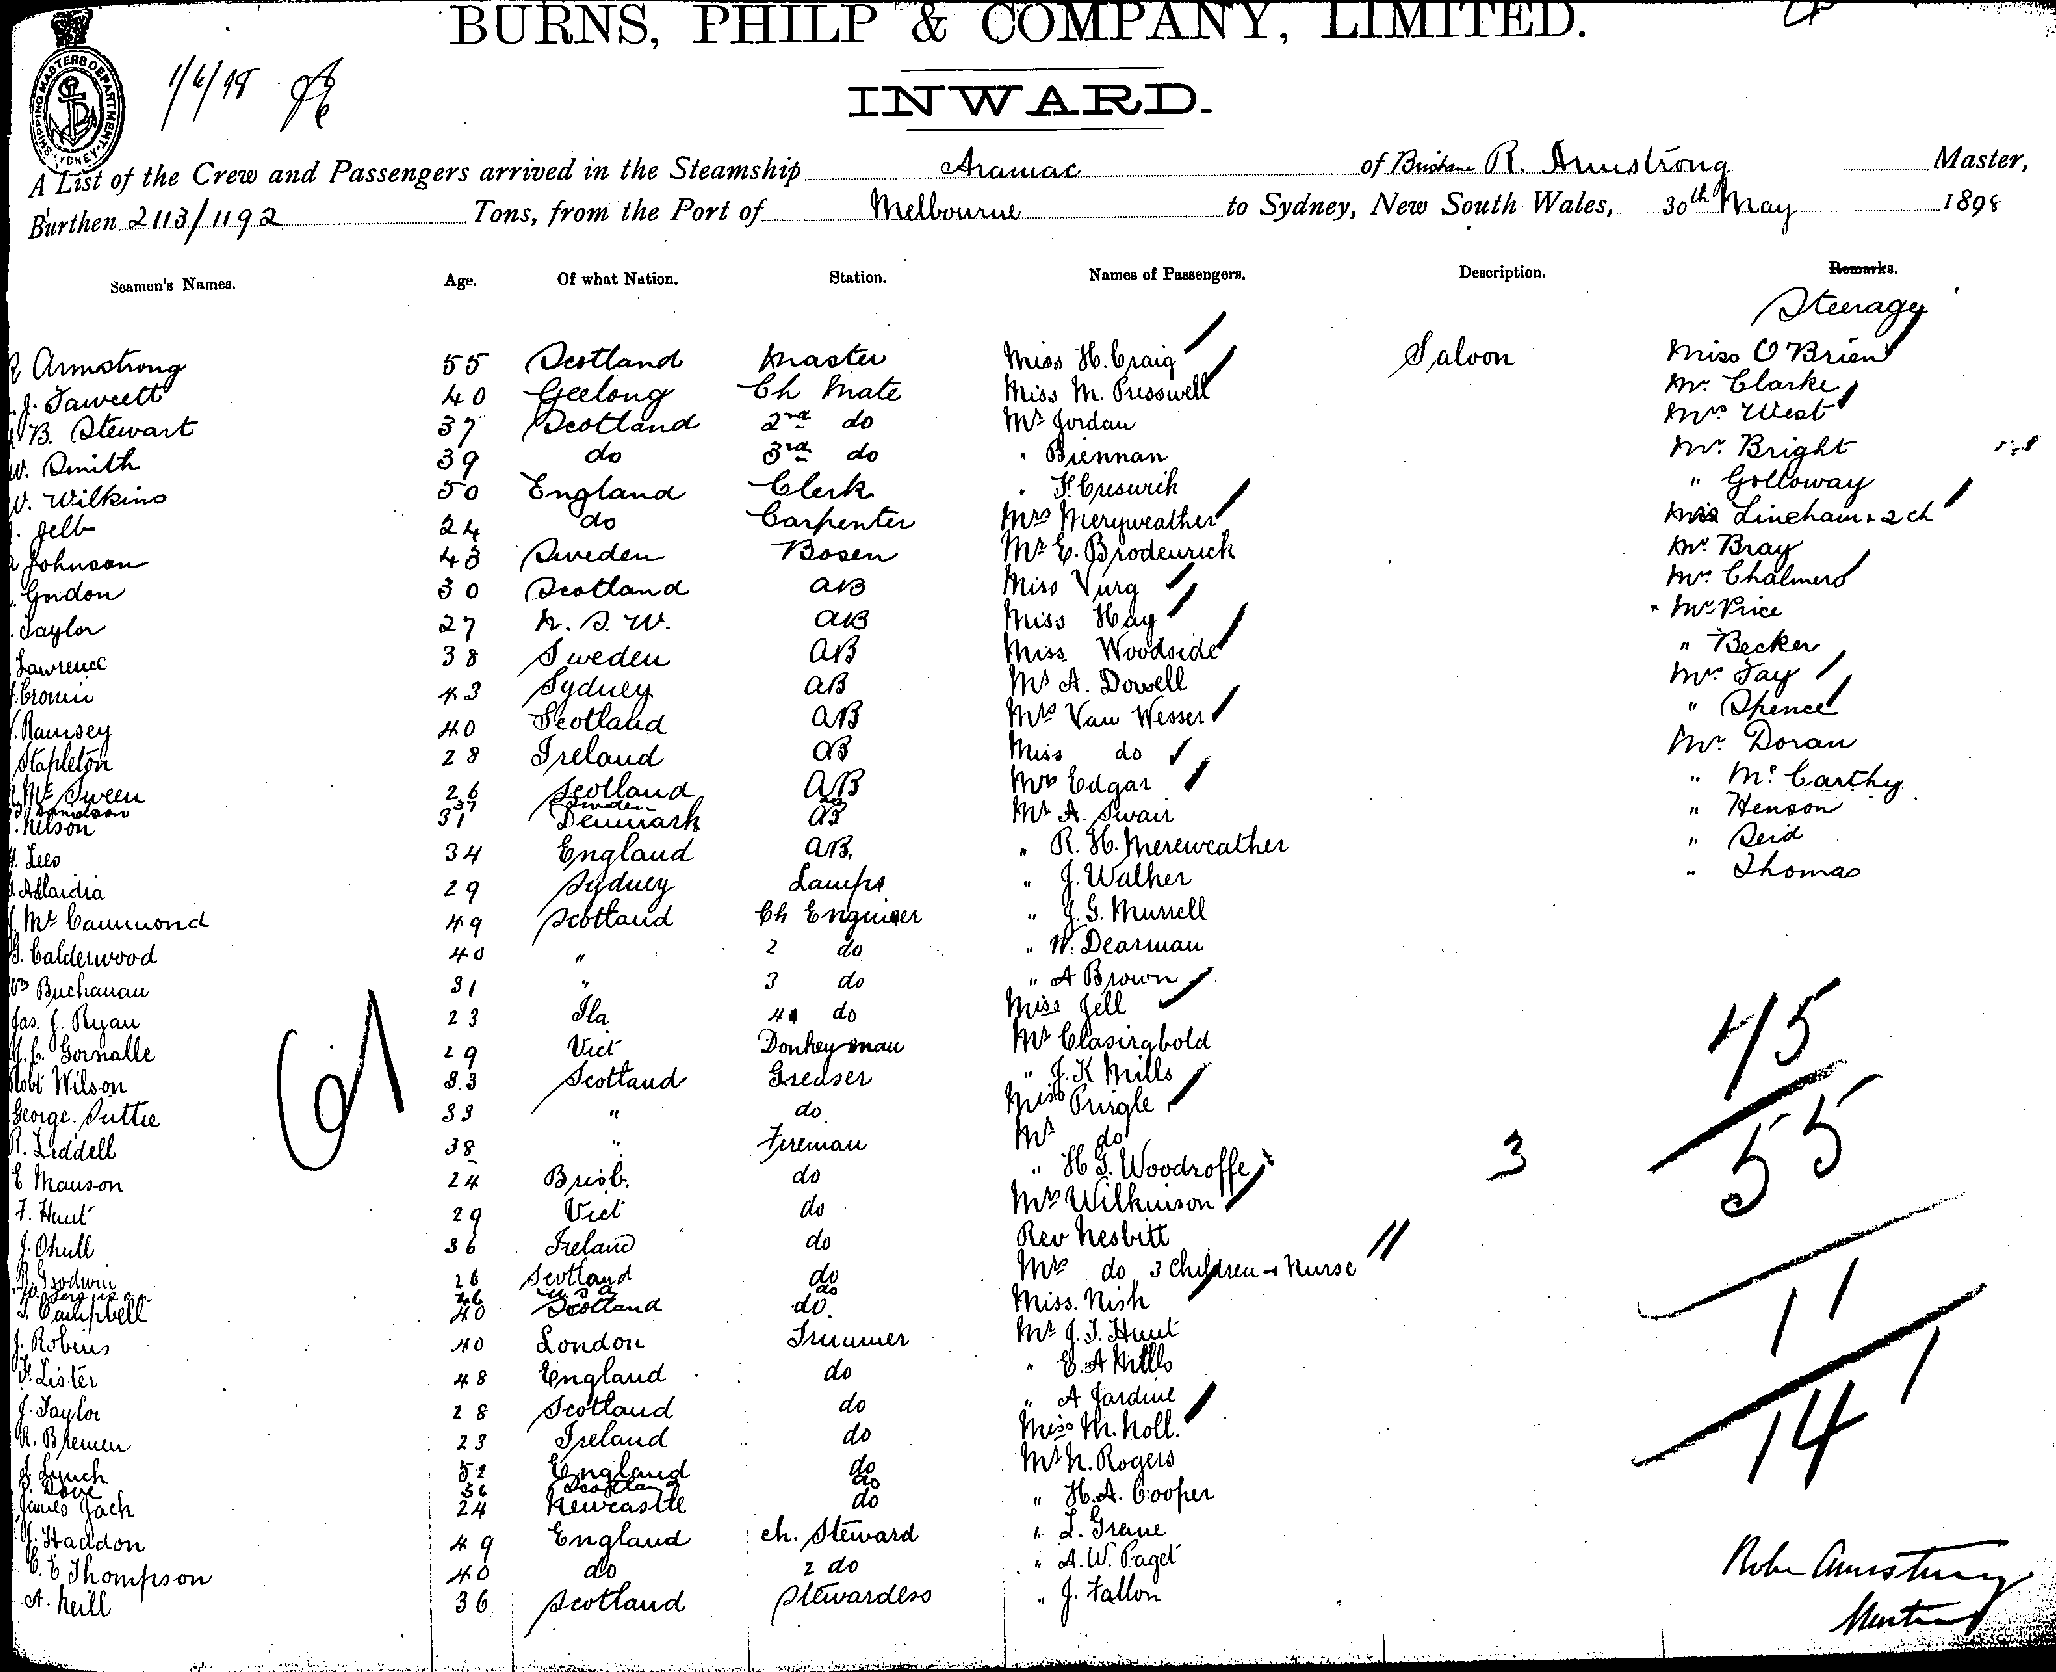 BURNS, PHILP & COMPANY, LIMITED.
SHIPPING MASTERS DEPARTMENT SYDNEY
1/6/98
INWARD.
A List of the Crew and Passengers arrived in the Steamship Aramac of Brisbane R. Armstrong Master,
Burthen 2113/1192 Tons, from the Port of Melbourne to Sydney, New South Wales, 30th May 1898
Seamen's Names. Age. Of what Nation. Station. Names of Passengers. Description. Remarks.
Steerage
Armstrong 55 Scotland Master Miss H. Craig Saloon Miss O'Brien
J. Fawcett 40 Geelong Ch Mate Miss M. Presswell Mr. Clarke
B. Stewart 37 Scotland 2nd do Mr Jordan Mrs West
W. Smith 39 do 3rd do " Brennan Mr. Bright
W. Wilkins 50 England Clerk " Creswick " Golloway
Jelb 24 do Carpenter Mrs Meryweather Lineham + 2 ch
Johnson 43 Sweden Bosen Mr E. Broderick Mr Bray
Gordon 30 Scotland AB Miss Vurg Mrs. Chalmers
Taylor 27 N. S. W. AB Miss Hay Mr Price
Lawrence 38 Sweden AB Miss Woodside " Becker
Cronin 43 Sydney AB Mr A. Dowell Mrs Fay
Ramsey 40 Scotland AB Mrs Van Wesser " Spence
Stapleton 28 Ireland AB Miss do Mr. Doran
McSween 26 Scotland AB Mrs Edgar " McCarthy
Danielson 37 Sweden
Nelson 31 Denmark AB Mr A. Swair " Henson
Lees 34 England AB. " R. H. Mereweather " Seid
29 Sydney Lamps " J. Walker " Thomas
McCammond 49 Scotland Ch Engineer " J. G. Murrell
G. Calderwood 40 " 2 do " W. Dearman
Buchanan 31 " 3 do " A Brown
Jas. J. Ryan 23 4 do Miss Jell
Gornalle 29 Vict Donkeyman Mr Clasingbold
Robt Wilson 33 Scotland Greaser " J. K Mills
George Suttie 33 " do Miss Pringle
R. Liddell 38 " Fireman Mr do
E Manson 24 Brisb. do " H G. Woodroffe
F. Hunt 29 Vict do Mrs Wilkinson
J. Ohull 36 Ireland do Rev Nesbitt
Goodwin 26 Scotland do Mrs do 3 Children + Nurse
26 U S A do
Campbell 40 Scotland do. Miss. Nish
J. Robins 40 London Trimmer Mr J. T. Hunt
F. Lister 48 England do " E. A Mills
J. Taylor 28 Scotland do " A Jardine
R. Bremen 23 Ireland do Miss M. Noll.
J. Lynch 52 England do Mr N. Rogers
J. Dove 36 Scotland do
James Jack 24 Newcastle do " H. A. Cooper
J. Haddon 49 England ch. Steward " L. Greve
C. E Thompson 40 do 2 do " A. W. Paget
A. Neill 36 Scotland Stewardess " J. Fallon
61
3
45
55
11
1
14
Robt Armstrong
Master